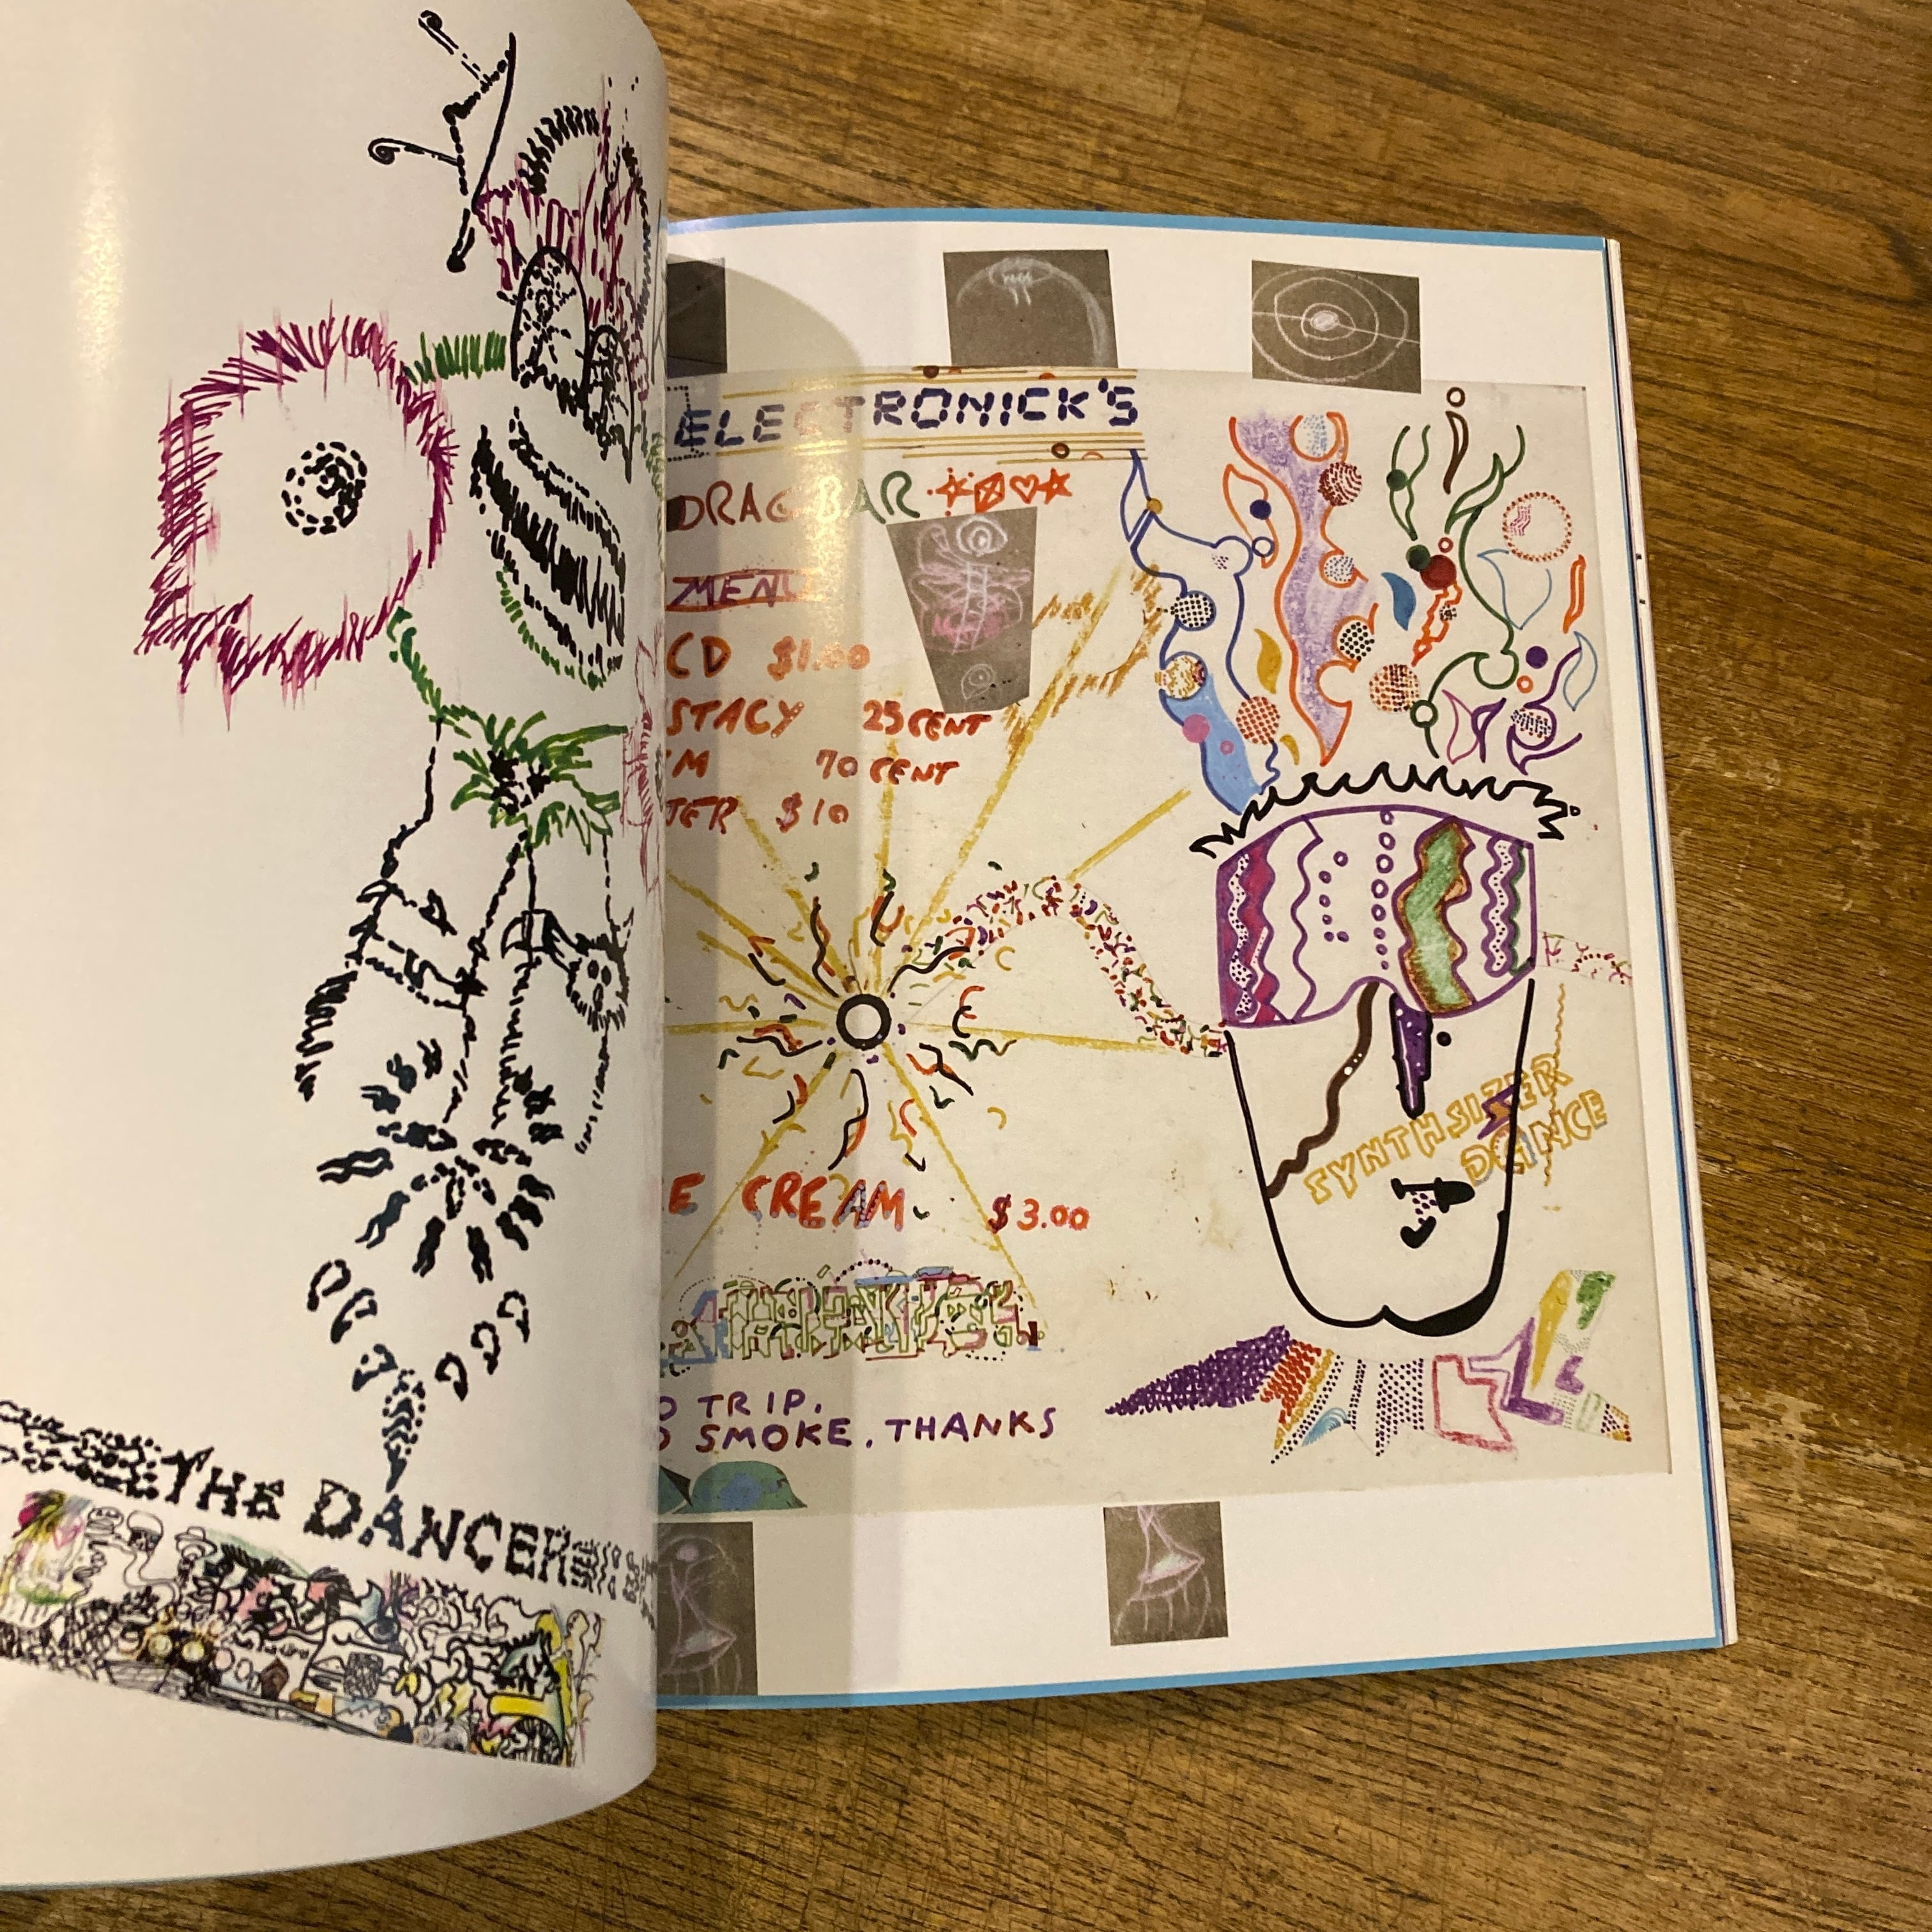 THE DANCER
ELECTRONICK'S
DRAG BAR
MENU
CD $1.00
STACY 25 CENT
M 70 CENT
TER $10
E CREAM $3.00
SYNTHSIZER
DANCE
O TRIP.
O SMOKE. THANKS